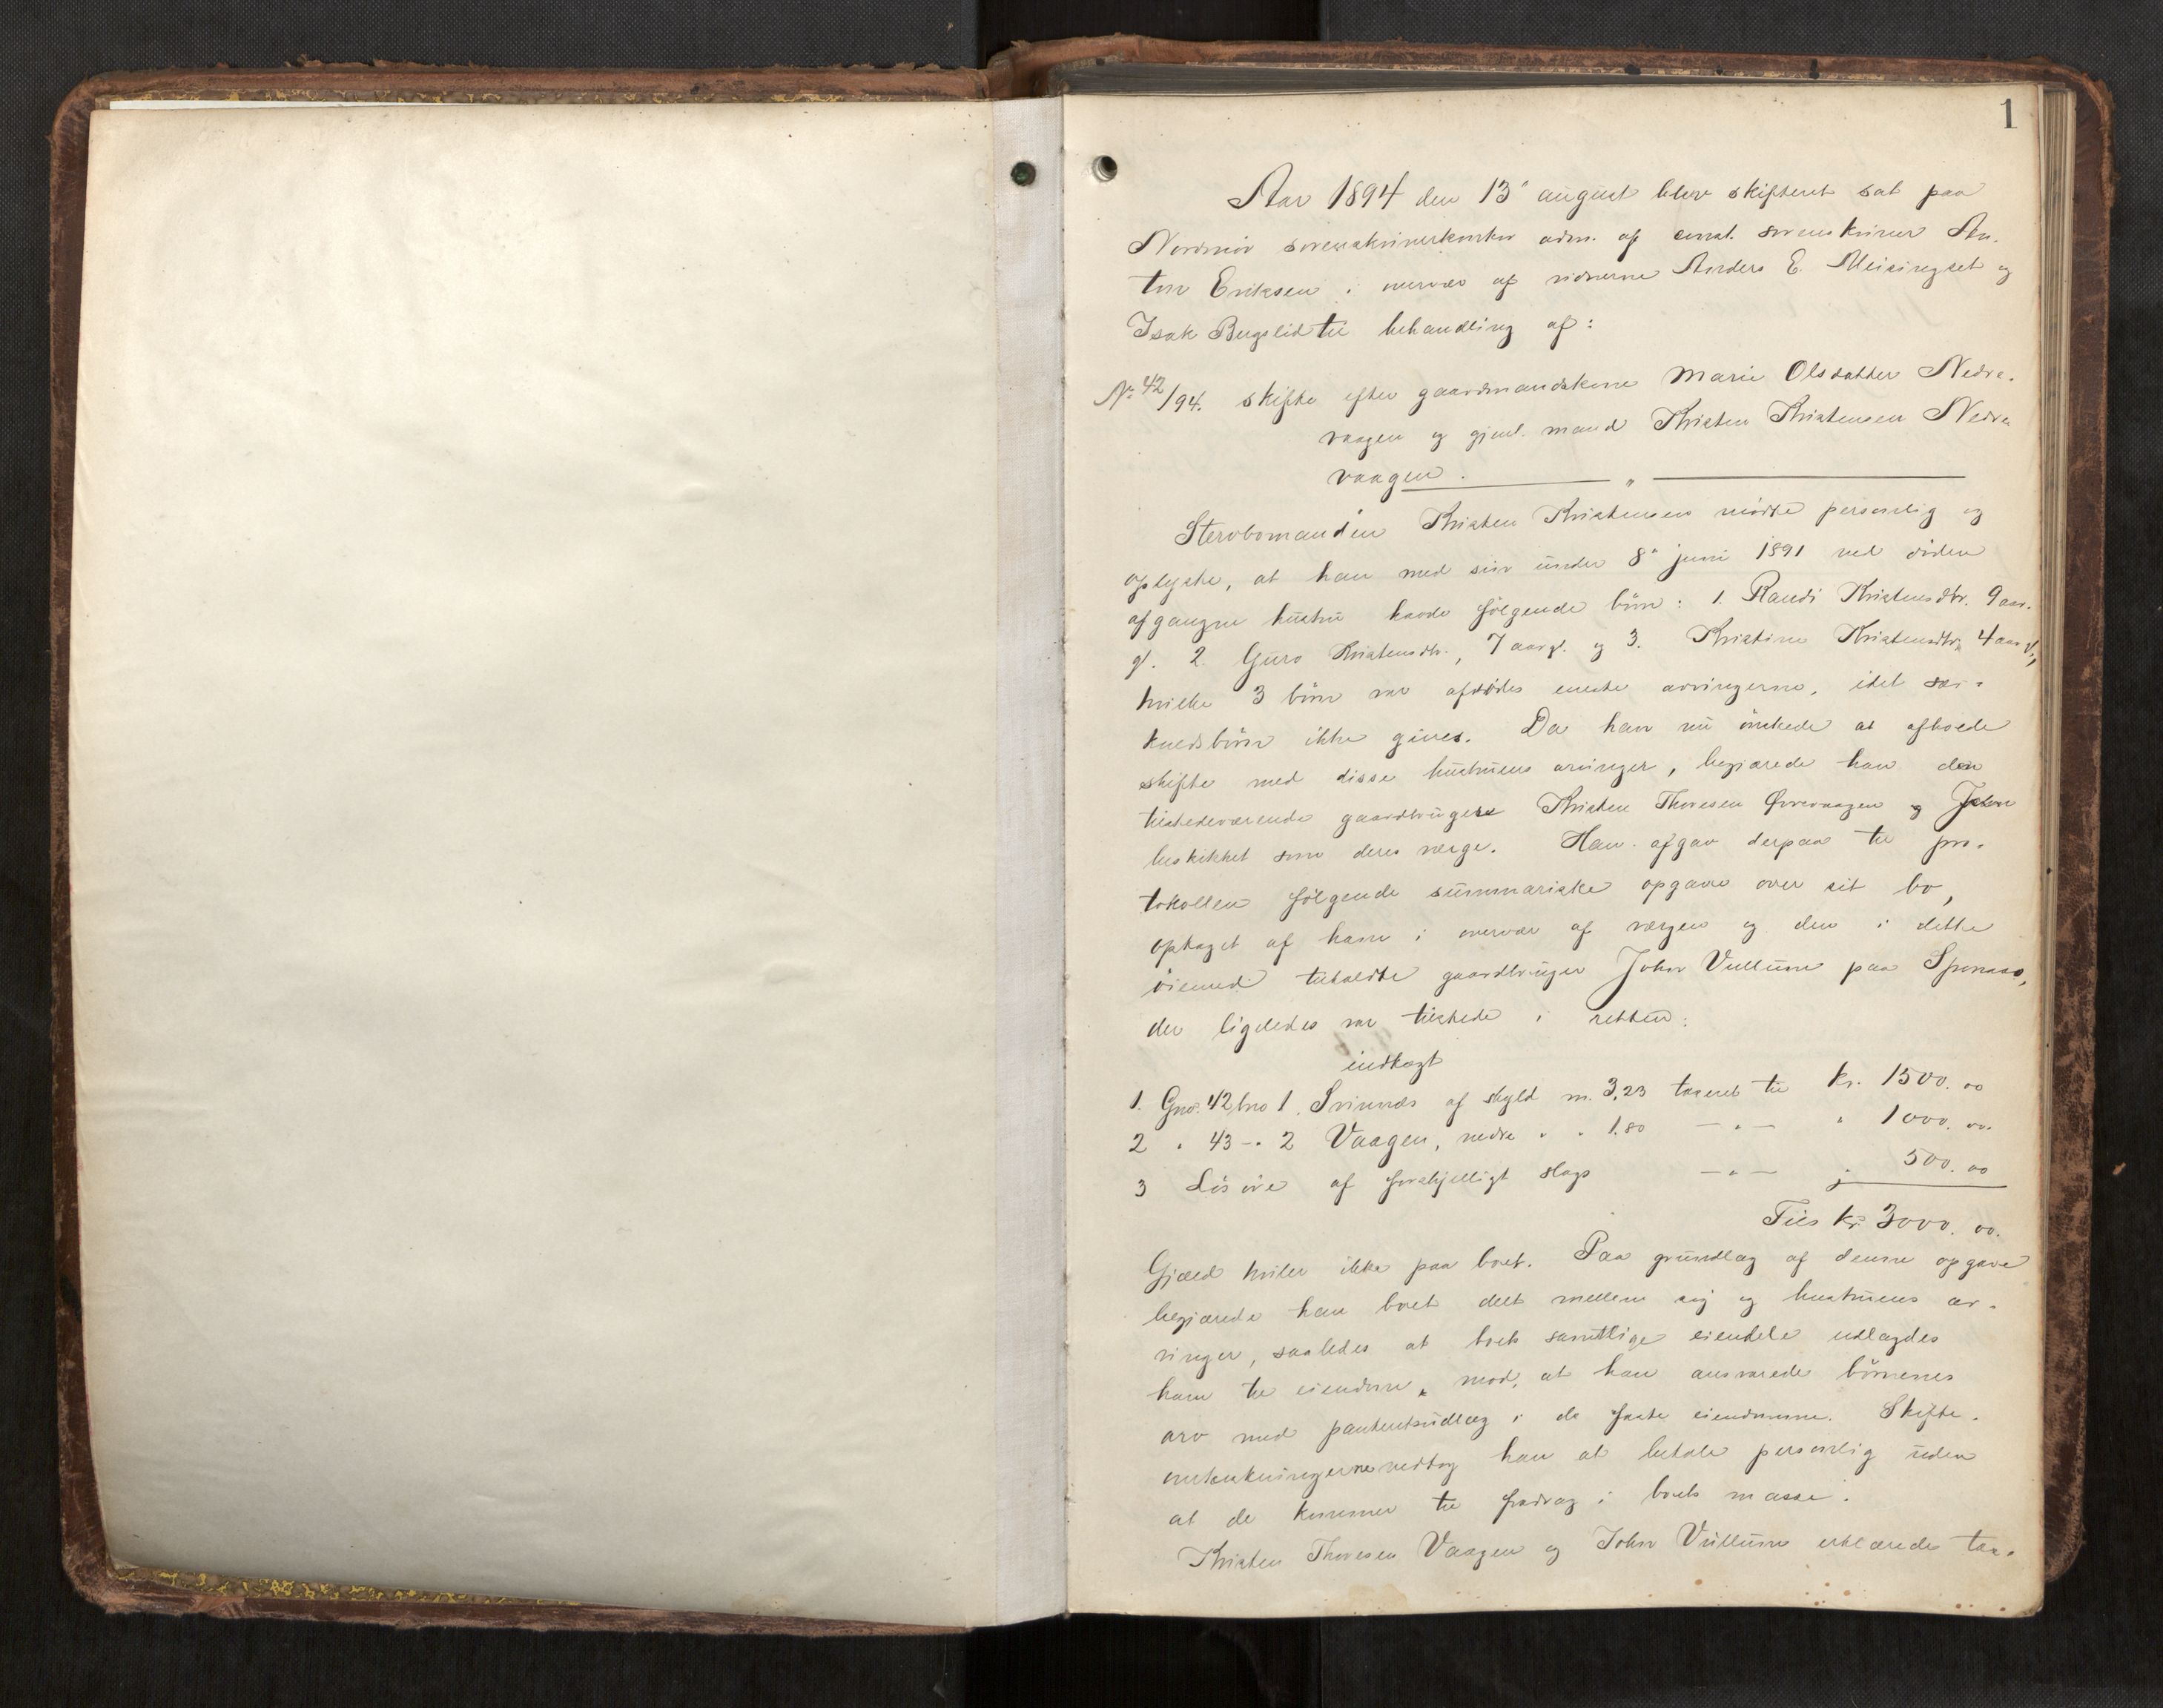 1
Aar 1894 den 13' august blev skifteret sat paa
Nordmør sorenskriverkontor adm. af const. sorenskriver An-
ton Eriksen i overvær af vidnerne Anders E. Meisingset og
Isak Bugslid til behandling af:
No 42/94. skifte efter gaardmandskone Marie Olsdatter Nedre-
vaagen og gjenl. mand Kristen Kristensen Nedre
vaagen. — " —
Stervbomanden Kristen Kristensen mødte personlig og
oplyste, at han med sin under 8' juni 1891 ved døden
afgangne hustru havde følgende børn: 1. Randi Kristensdtr. 9 aar.
gl. 2. Guro Kristensdtr., 7 aar gl. og 3. Kristine Kristensdtr. 4 aar gl.,
hvilke 3 børn var afdødes eneste arvingerne, idet sær-
kuldsbørn ikke gives. Da han nu ønskede at afholde
skifte med disse hustruens arvinger, begjærede han den
tilstedeværende gaardbruger Kristen Thoresen Øvrevaagen og John
beskikket som deres værge. Han afgav derpaa til pro-
tokollen følgende summariske opgave over sit bo,
optaget af ham i overvær af værgen og den i dette
øiemed tilkaldte gaardbruger John Vullum paa
der ligeledes var tilstede i retten:
indtægt
1. Gno. 42 bno 1. Svinnæs af skyld m. 3,23 taxeret til kr. 1500. 00
2 " 43 -" 2 Vaagen, nedre " " 1.80 — " — " 1000. 00.
3 Løsøre af forskjelligt slags — " — " 500. 00
Tils kr. 3000. 00.
Gjæld hviler ikke paa boet. Paa grundlag af denne opgave
begjærede han boet delt mellem sig og hustruens ar-
vinger, saaledes at boets samtlige eiendele udlagdes
ham til eiendom, mod, at han ansvarede børnenes
arv med panteretsudlæg i de faste eiendomme. Skifte-
omkostningerne vedtog han at betale personlig uden
at de kommer til fradrag i boets masse.
Kristen Thoresen Vaagen og John Vullum erklærede tax-